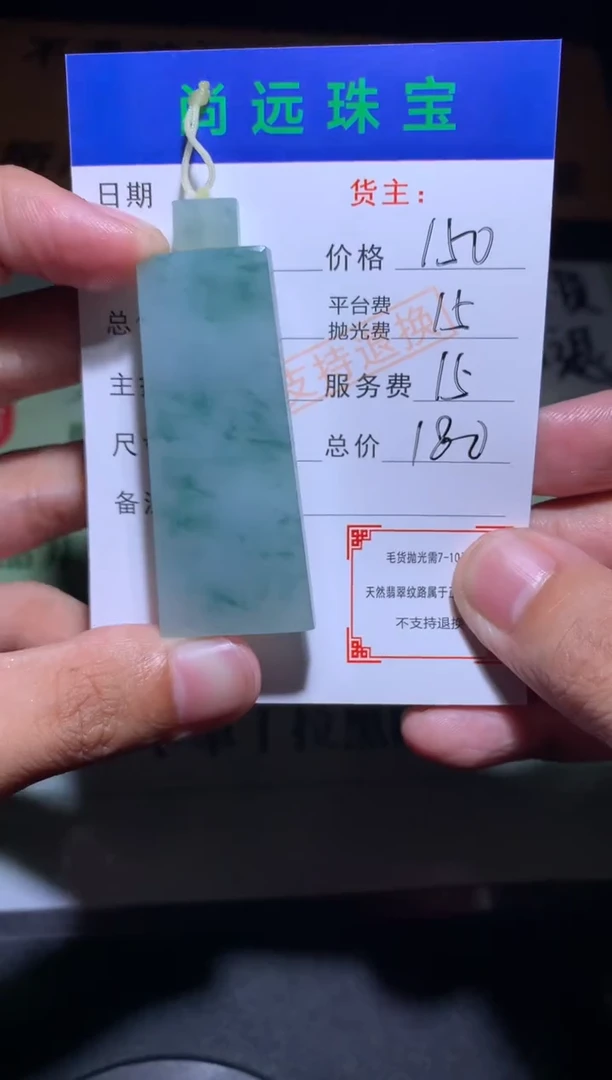 尚远珠宝
日期
货主：
价格 150
总
平台费
抛光费 15
支持退换
主
服务费 15
尺
总价 180
备注
毛货抛光需7-10
天然翡翠纹路属于正
不支持退换